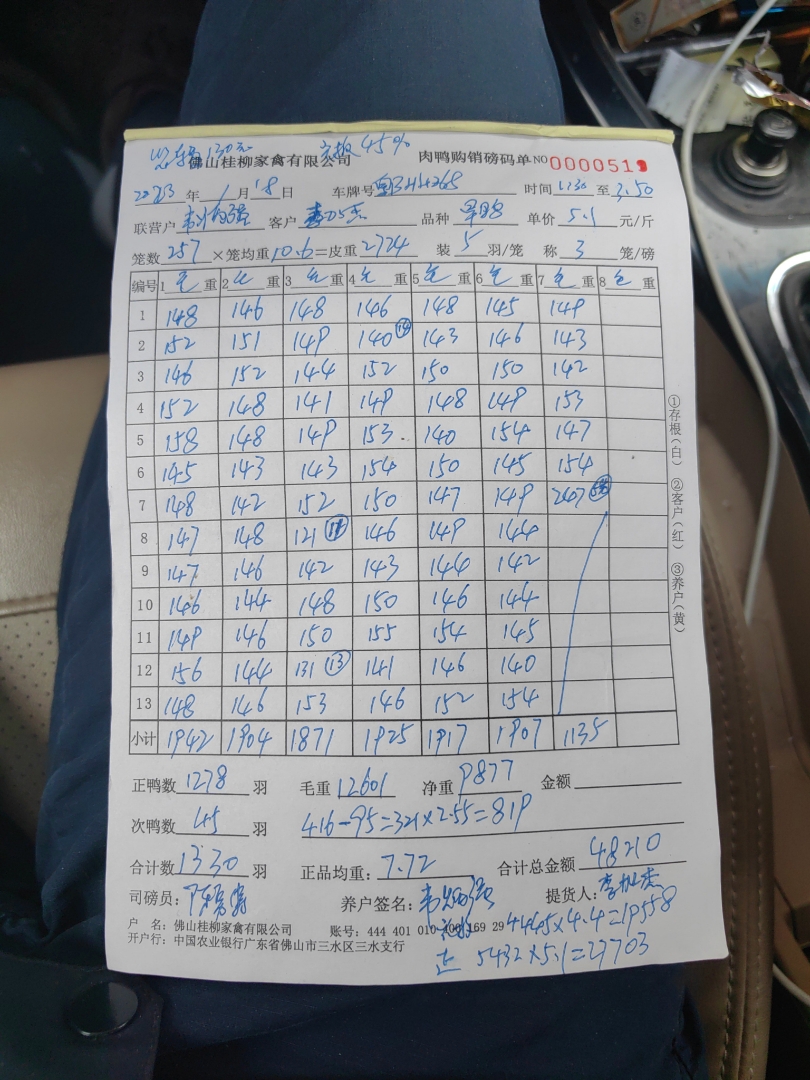 佛山桂柳家禽有限公司 45% 肉鸭购销磅码单 NO 0000519
2023年1月18日 车牌号 时间 至 3:50
联营户 客户 品种 单价 5.1 元/斤
笼数 257 ×笼均重 10.6 =皮重 2724 装 5 羽/笼 称 3 笼/磅
编号 1 毛重 2 毛重 3 毛重 4 毛重 5 毛重 6 毛重 7 毛重 8 毛重
1 148 146 148 146 148 145 149
2 152 151 149 140 ⑭ 143 146 143
3 146 152 144 152 150 150 142
4 152 148 141 149 148 149 153
5 158 148 149 153 140 154 147
6 145 143 143 154 150 145 154
7 148 142 152 150 147 149 247
8 147 148 121 146 149 144
9 147 146 142 143 144 142
10 146 144 148 150 146 144
11 149 146 150 155 154 145
12 156 144 131 ⑬ 141 146 140
13 148 146 153 146 152 154
小计 1942 1904 1871 1925 1917 1907 1135
①存根(白) ②客户(红) ③养户(黄)
正鸭数 1278 羽 毛重 12601 净重 9877 金额
次鸭数 45 羽 416-95=321×2.55=819
合计数 1330 羽 正品均重: 7.72 合计总金额 48210
司磅员: 养户签名: 提货人:
户 名: 佛山桂柳家禽有限公司 账号: 444 401 010 400 169 29 4445×4.4=19558
开户行: 中国农业银行广东省佛山市三水区三水支行 5432×5.1=27703